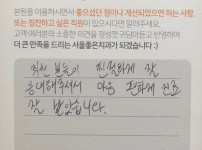 본원을 이용하시면서 좋으셨던 점이나 개선되었으면 하는 사항,
또는 칭찬하고 싶은 직원이 있으시다면 알려주세요.
고객 여러분의 소중한 의견을 정성껏 귀담아듣고 반영하여
더 큰 만족을 드리는 서울좋은치과가 되겠습니다 :)
직원 분들이 친절하게 잘
응대해주셔서 마음 편하게 진료
잘 받았습니다.